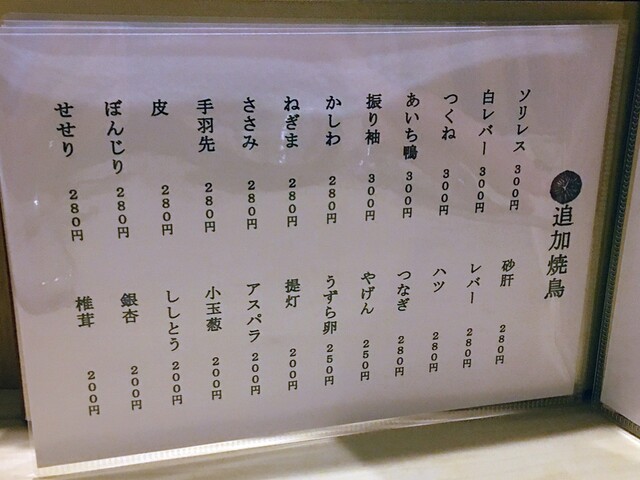 追加焼鳥
ソリレス 300円
白レバー 300円
つくね 300円
あいち鴨 300円
振り袖 300円
かしわ 280円
ねぎま 280円
ささみ 280円
手羽先 280円
皮 280円
ぼんじり 280円
せせり 280円
砂肝 280円
レバー 280円
ハツ 280円
つなぎ 280円
やげん 250円
うずら卵 250円
提灯 200円
アスパラ 200円
小玉葱 200円
ししとう 200円
銀杏 200円
椎茸 200円